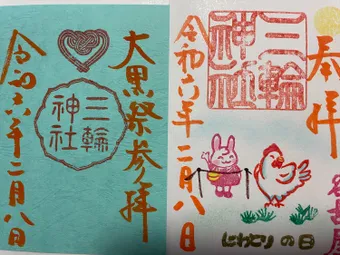 大黒祭参拝
三輪
神社
令和六年二月八日
奉拝
三輪
神社
令和六年二月八日
にわとりの日
名古屋